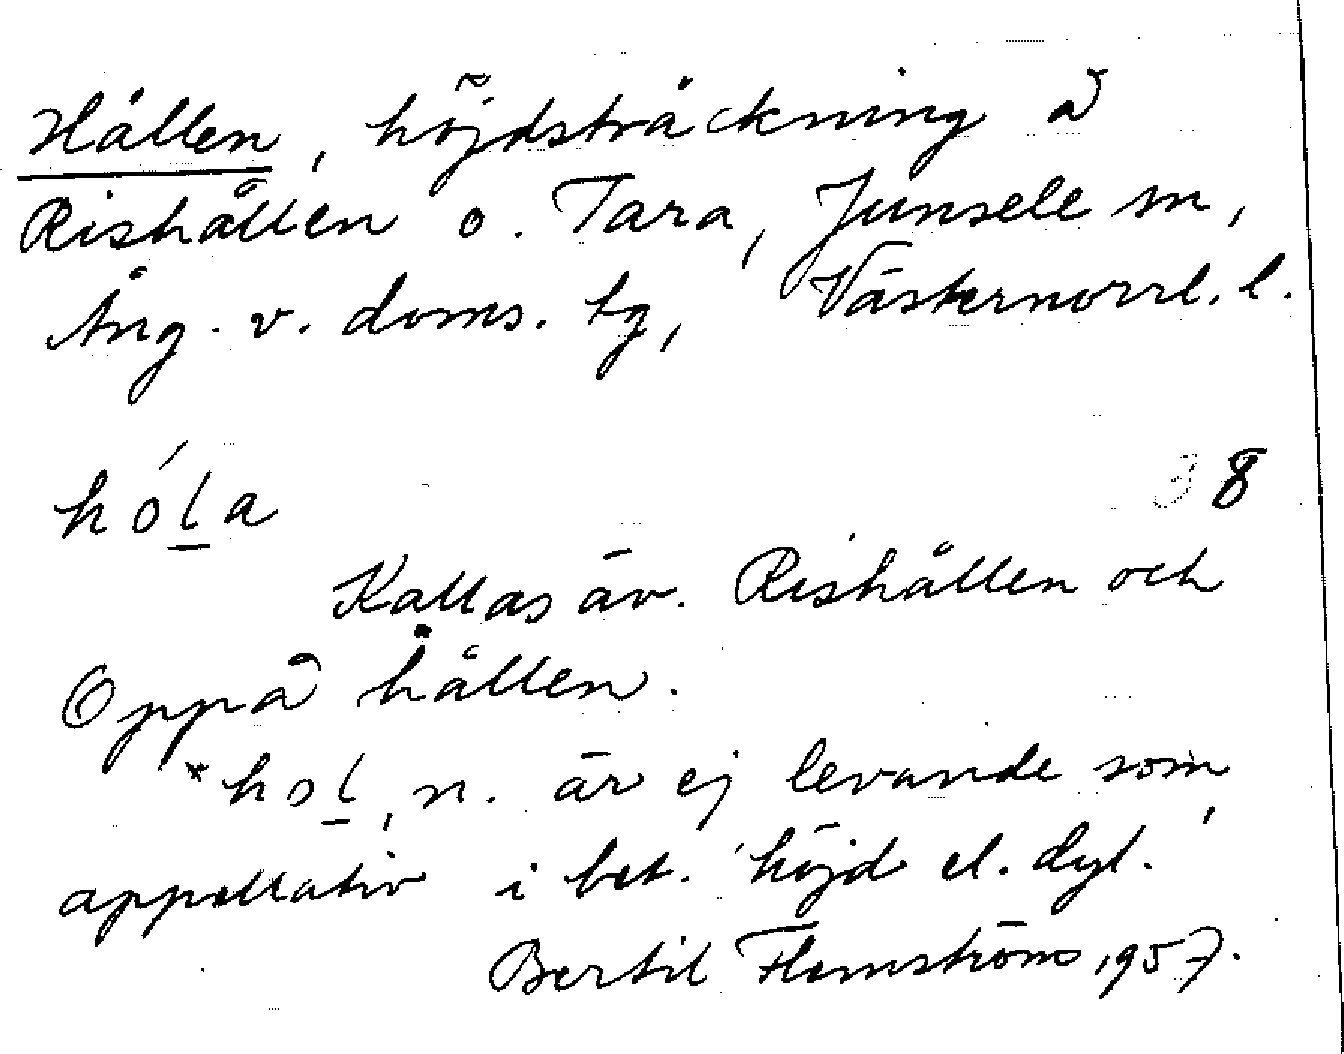 Hållen, höjdsträckning å
Rishållen o. Tara, Junsele sn,
Ång. v. doms. tg, Västernorrl. l.
hóla
38
Kallas äv. Rishållen och
Oppå hållen.
*hol, n. är ej levande som
appellativ i bet. 'höjd el. dyl.'
Bertil Flemström 1957.